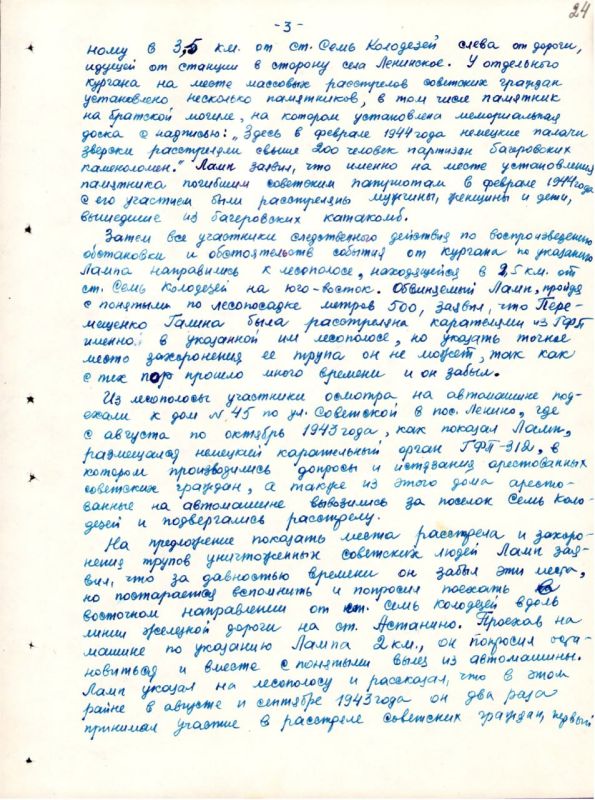 24
-3-
ному в 3,5 км. от ст. Семь Колодезей слева от дороги,
идущей от станции в сторону села Ленинское. У отдельного
кургана на месте массовых расстрелов советских граждан
установлено несколько памятников, в том числе памятник
на братской могиле, на котором установлена мемориальная
доска с надписью: "Здесь в феврале 1944 года немецкие палачи
зверски расстреляли свыше 200 человек партизан багеровских
каменоломен." Ламп заявил, что именно на месте установления
памятника погибшим советским патриотам в феврале 1944 года
с его участием были расстреляны мужчины, женщины и дети,
вышедшие из багеровских катакомб.
Затем все участники следственного действия по воспроизведению
обстановки и обстоятельств события от кургана по указанию
Лампа направились к лесополосе, находящейся в 2,5 км. от
ст. Семь Колодезей на юго-восток. Обвиняемый Ламп, пройдя
с понятыми по лесопосадке метров 500, заявил, что Пере-
мещенко Галина была расстреляна карателями из ГФП
именно в указанной им лесополосе, но указать точное
место захоронения ее трупа он не может, так как
с тех пор прошло много времени и он забыл.
Из лесополосы участники осмотра на автомашине под-
ехали к дом № 45 по ул. Советской в пос. Ленино, где
с августа по октябрь 1943 года, как показал Ламп,
размещался немецкий карательный орган ГФП-312, в
котором производились допросы и истязания арестованных
советских граждан, а также из этого дома аресто-
ванные на автомашине вывозились за поселок Семь Коло-
дезей и подвергались расстрелу.
На предложение показать места расстрела и захоро-
нения трупов уничтоженных советских людей Ламп зая-
вил, что за давностью времени он забыл эти места,
но постарается вспомнить и попросил поехать в
восточном направлении от ст. Семь Колодезей вдоль
линии железной дороги на ст. Астанино. Проехав на
машине по указанию Лампа 2 км., он попросил оста-
новиться и вместе с понятыми вылез из автомашины.
Ламп указал на лесополосу и рассказал, что в этом
райне в августе и сентябре 1943 года он два раза
принимал участие в расстреле советских граждан, первый